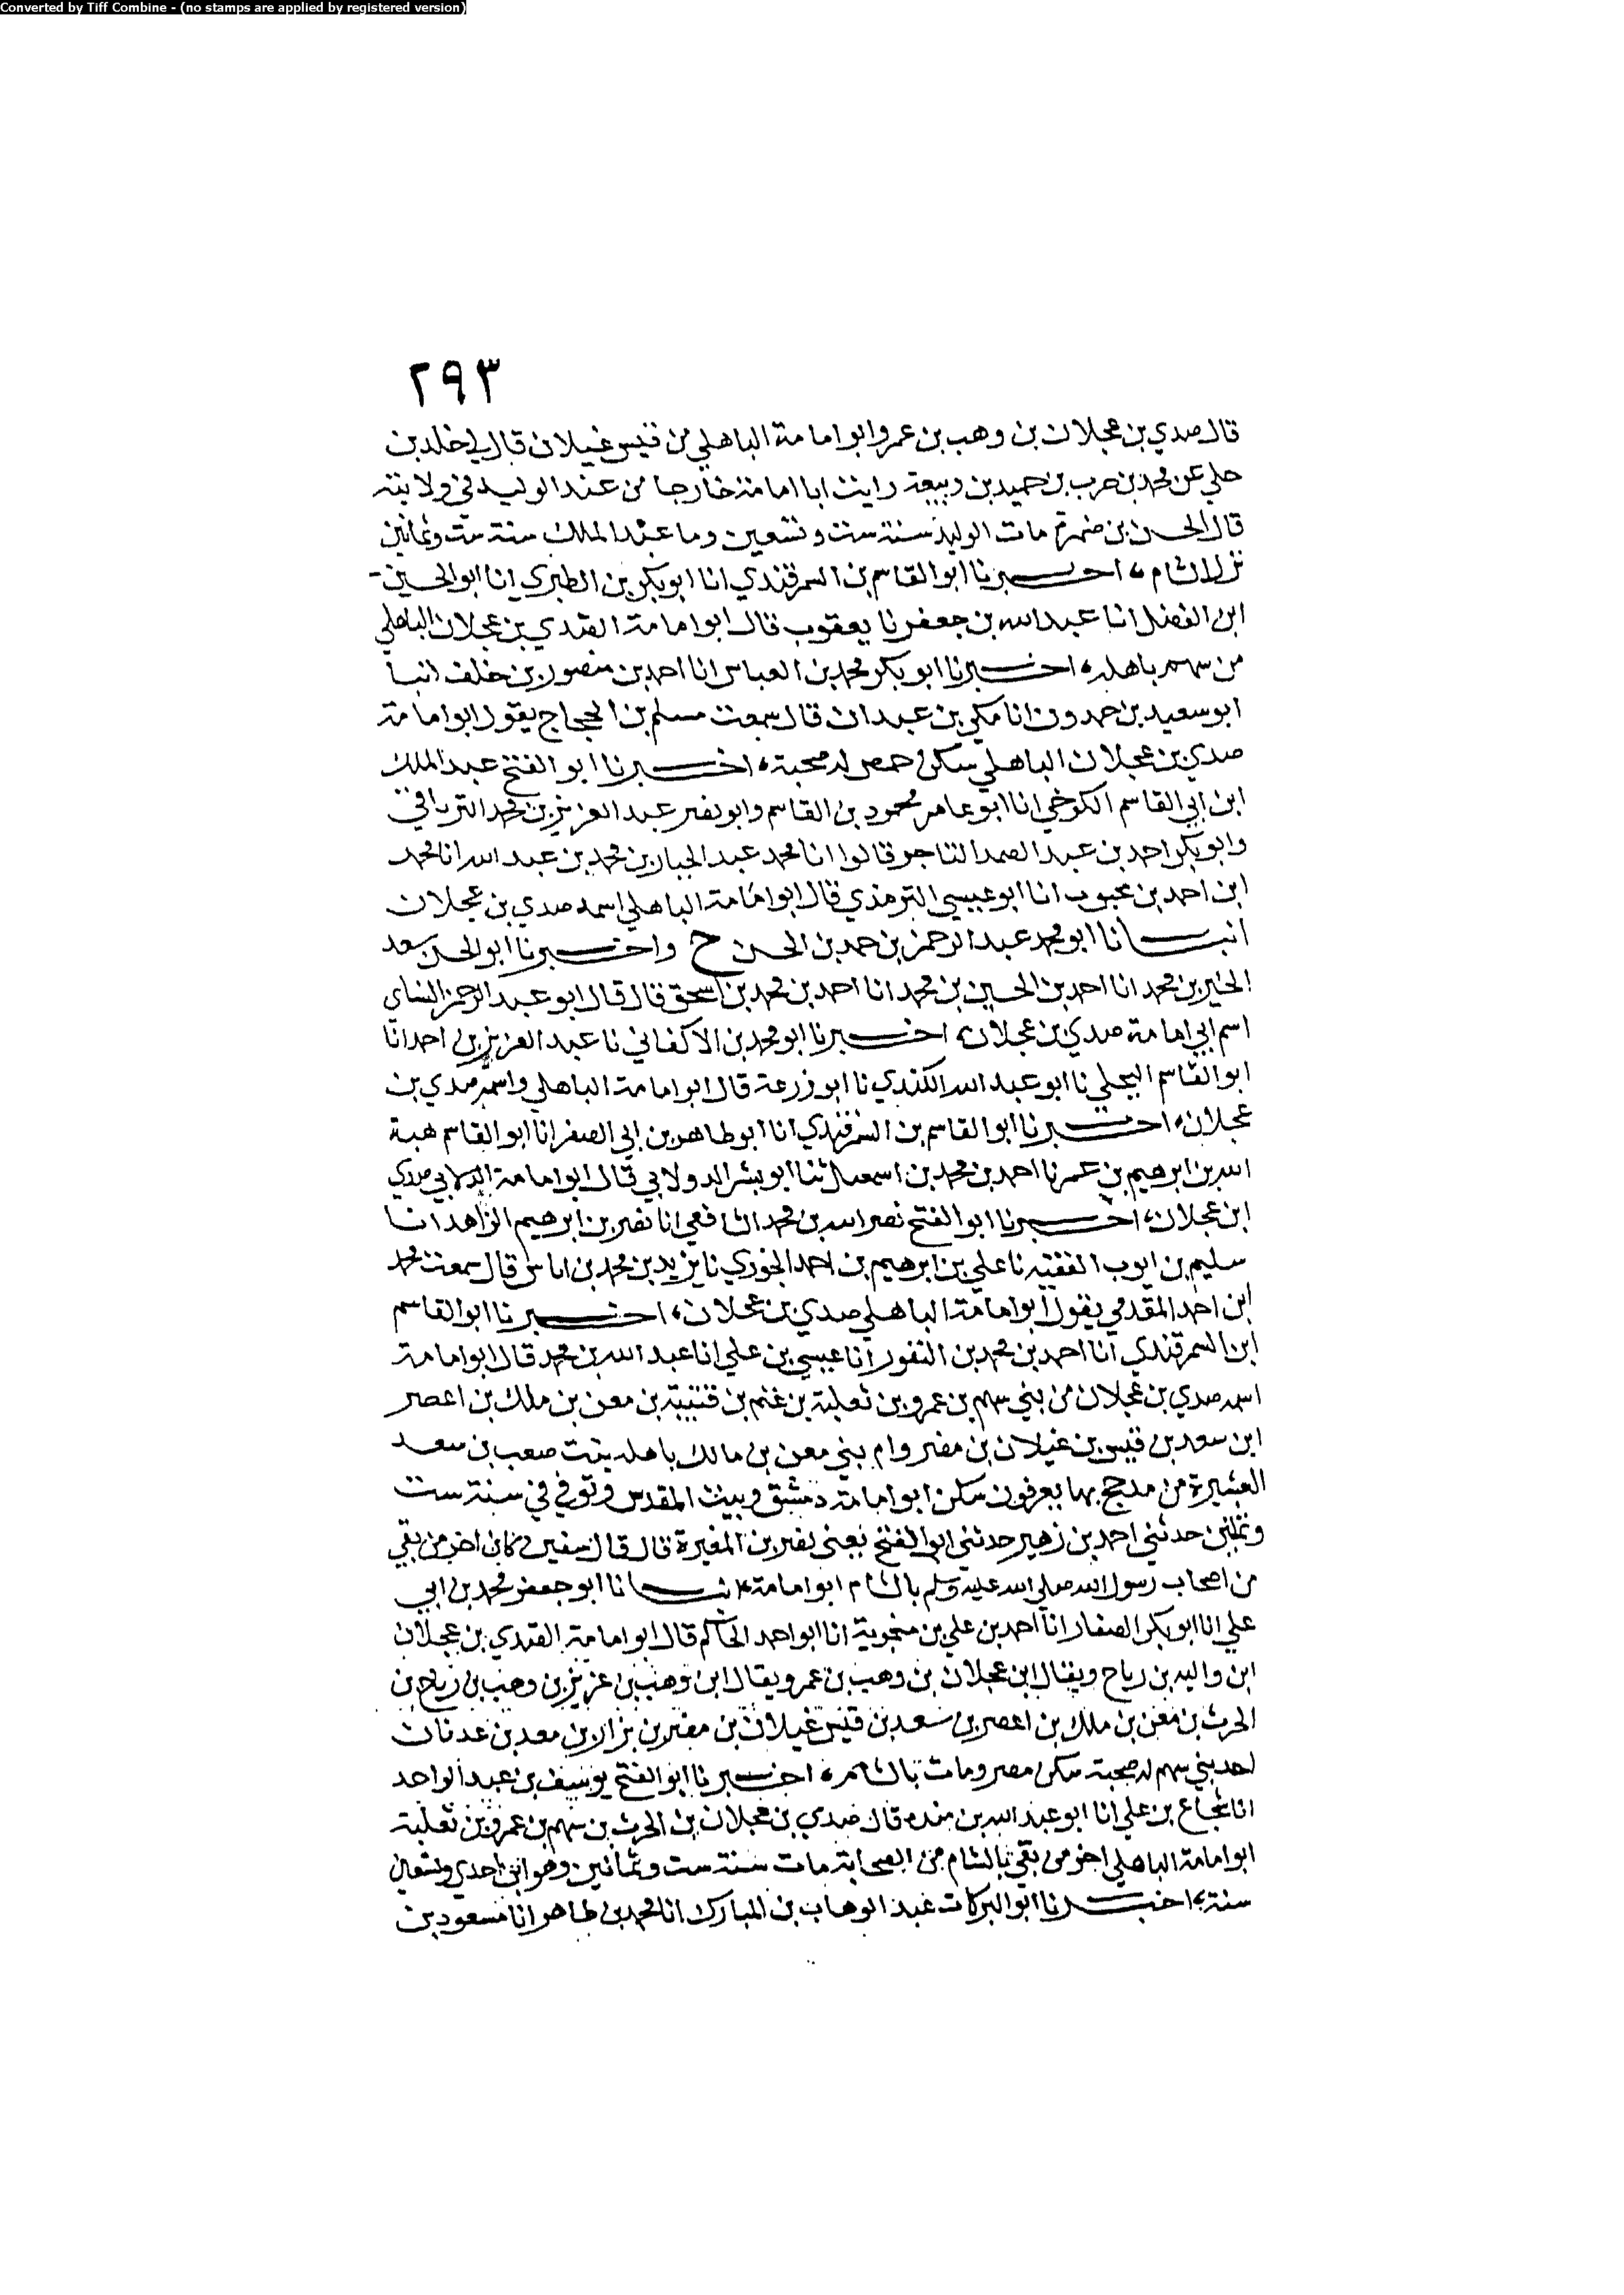 Converted by Tiff Combine - (no stamps are applied by registered version)
٢٩٣
قال صدي بن عجلان بن وهب بن عمرو ابو امامة الباهلي من قيس غيلان قال لي خلد بن
حلي عن محمد بن حرب بن حميد بن ربيعة رايت ابا امامة خارجا من عند الوليد في ولايته
قال الحسن بن ضمرة مات الوليد سنة ست وتسعين وما عبد الملك سنة ست وثمانين
نزل الشام، اخبرنا ابو القاسم بن السمرقندي انا ابو بكر بن الطبري انا ابو الحسين
ابن الفضل انا عبد الله بن جعفر نا يعقوب قال ابو امامة الصدي بن عجلان الباهلي
من سهم باهله، اخبرنا ابو بكر محمد بن العباس انا احمد بن منصور بن خلف انبا
ابو سعيد بن حمدون انا مكي بن عبدان قال سمعت مسلم بن الحجاج يقول ابو امامة
صدي بن عجلان الباهلي سكن حمص له صحبة، اخبرنا ابو الفتح عبد الملك
ابن ابي القاسم الكروخي انا ابو عامر محمود بن القاسم وابو نصر عبد العزيز بن محمد الترياقي
وابو بكر احمد بن عبد الصمد التاجر قالوا انا محمد عبد الجبار بن محمد بن عبد الله انا محمد
ابن احمد بن محبوب انا ابو عيسي الترمذي قال ابو امامة الباهلي اسمه صدي بن عجلان
انبانا ابو محمد عبد الرحمن بن حمد بن الحسن ح واخبرنا ابو الحسن سعد
الخير بن محمد انا احمد بن الحسين بن محمد انا احمد بن محمد بن اسحق قال قال ابو عبد الرحمن النساي
اسم ابي امامة صدي بن عجلان، اخبرنا ابو محمد بن الاكفاني نا عبد العزيز بن احمد انا
ابو القاسم البجلي نا ابو عبد الله الكندي نا ابو زرعة قال ابو امامة الباهلي واسمه صدي بن
عجلان، اخبرنا ابو القاسم بن السمرقندي انا ابو طاهر بن ابي الصقر انا ابو القاسم هبة
الله بن ابرهيم بن عمر نا احمد بن محمد بن اسمعيل ثنا ابو بشر الدولابي قال ابو امامة صدي
ابن عجلان، اخبرنا ابو الفتح نصر الله بن محمد الشافعي انا نصر بن ابرهيم الزاهد انا
سليم بن ايوب الفقيه نا علي بن ابرهيم بن احمد الجوري نا يزيد بن محمد بن اياس قال سمعت محمد
ابن احمد المقدمي يقول ابو امامة الباهلي صدي بن عجلان، اخبرنا ابو القاسم
ابن السمرقندي انا احمد بن محمد بن النقور انا عيسي بن علي انا عبد الله بن محمد قال ابو امامة
اسمه صدي بن عجلان من بني سهم بن عمرو بن ثعلبة بن غنم بن قتيبة بن معن بن ملك بن اعصر
ابن سعد بن قيس بن غيلان بن مضر وام بني معن بن مالك باهله بنت صعب بن سعد
العشيرة من مدحج بها يعرفون سكن ابو امامة دمشق وبيت المقدس وتوفي في سنة ست
وثمانين حدثني احمد بن زهير حدثني ابو الفتح يعني نصر بن المغيرة قال قال سفين كان اخر من بقي
من اصحاب رسول الله صلي الله عليه وسلم بالشام ابو امامة، انبانا ابو جعفر محمد بن ابي
علي انا ابو بكر الصفار انا احمد بن علي بن منجوية انا ابو احمد الحاكم قال ابو امامة الصدي بن عجلان
ابن والبه بن رياح ويقال ابن عجلان بن وهب بن عمرو يقال ابن وهب بن عزيز بن وهب بن رياح بن
الحرث بن معن بن ملك بن اعصر بن سعد بن قيس غيلان بن مضر بن نزار بن معد بن عدنان
احد بني سهم له صحبة سكن مصر ومات بالشام، اخبرنا ابو الفتح يوسف بن عبد الواحد
انا شجاع بن علي انا ابو عبد الله بن منده قال صدي بن عجلان بن الحرث بن سهم بن عمرو بن ثعلبة
ابو امامة الباهلي اخر من بقي بالشام من الصحابة مات سنة ست وثمانين وهو ابن احدي وتسعين
سنة، اخبرنا ابو البركات عبد الوهاب بن المبارك انا محمد بن طاهر انا مسعود بن